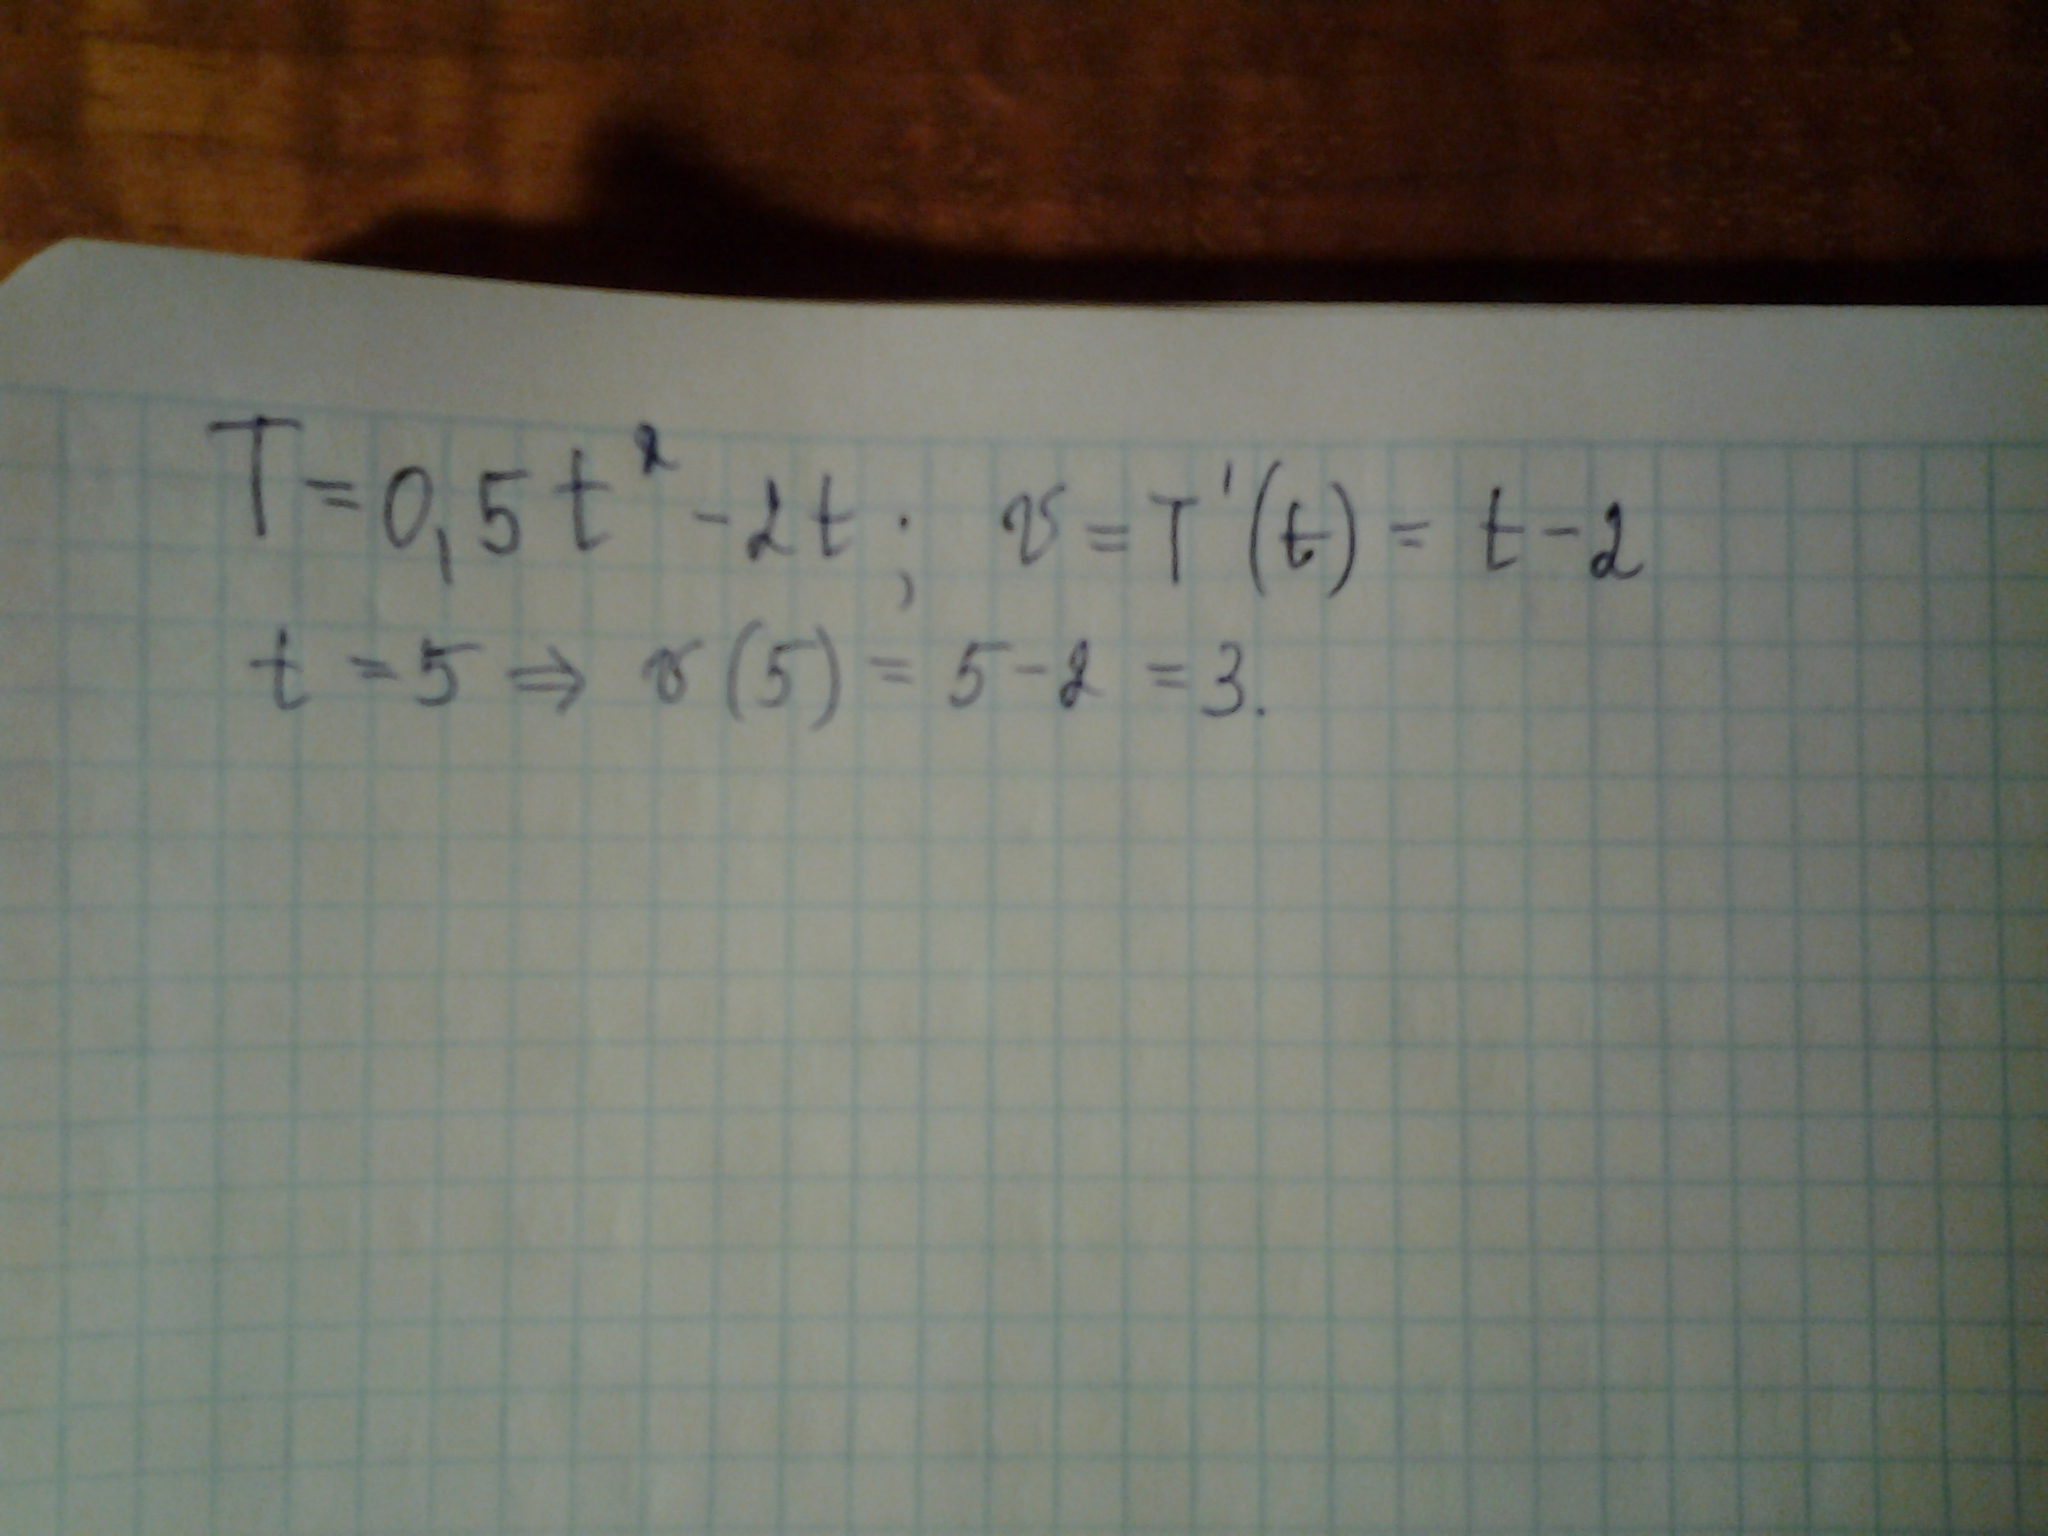 T = 0,5t² - 2t; v = T'(t) = t - 2
t = 5 ⇒ v(5) = 5 - 2 = 3.